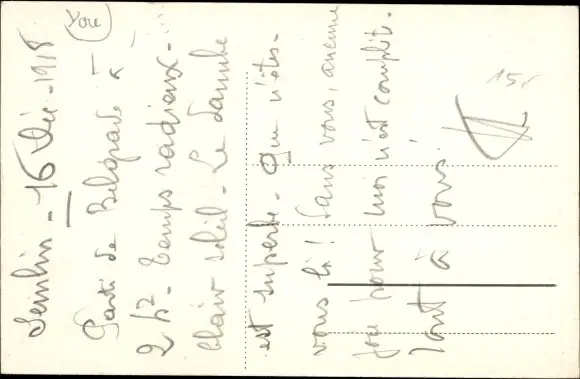 Semlin - 16 Déc - 1918
Parti de Belgrade à
2 h². Temps radieux -
Clair soleil - Le Danube
est superbe - Que n'êtes-
vous là! Sans vous, aucune
joie pour moi n'est complète.
Tout à vous.
15